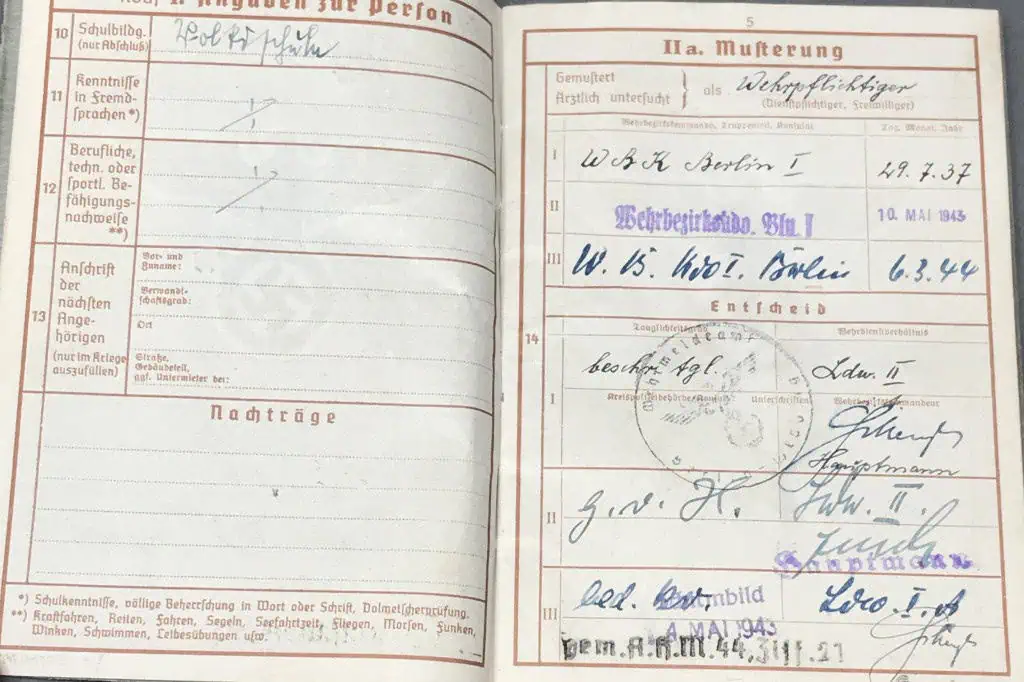 1. Angaben zur Person
10 Schulbildg. (nur Abschluß)
Volksschule
11 Kenntnisse in Fremd-
sprachen *)
12 Berufliche,
techn. oder
sportl. Be-
fähigungs-
nachweise
**)
13 Anschrift
der
nächsten
Ange-
hörigen
(nur im Kriege
auszufüllen)
Vor- und
Zuname:
Verwandt-
schaftsgrad:
Ort
Straße,
Gebäudeteil,
ggf. Untermieter bei:
Nachträge
*) Schulkenntnisse, völlige Beherrschung in Wort oder Schrift, Dolmetscherprüfung.
**) Kraftfahren, Reiten, Fahren, Segeln, Seefahrtzeit, Fliegen, Morsen, Funken,
Winken, Schwimmen, Leibesübungen usw.
5
IIa. Musterung
Gemustert
Ärztlich untersucht
als Wehrpflichtiger
(Dienstpflichtiger, Freiwilliger)
Wehrbezirkskommando, Truppenteil, Konsulat
Tag, Monat, Jahr
I W B K Berlin I 29.7.37
II Wehrbezirkskdo. Bln. I 10. MAI 1943
III W. B. Kdo I. Berlin 6.3.44
Entscheid
14
Tauglichkeitsgrad
Wehrdienstverhältnis
I beschr. tgl. Ldw. II
Wehrmeldeamt
Kreispolizeibehörde/Konsul
Unterschriften
Wehrbezirkskommandeur
Hauptmann
II g. v. H. Ldw. II.
Hauptmann
III bed. kv. Ldw. I.
MAI 1943
gem. A.H.M. 44, Ziff. 21